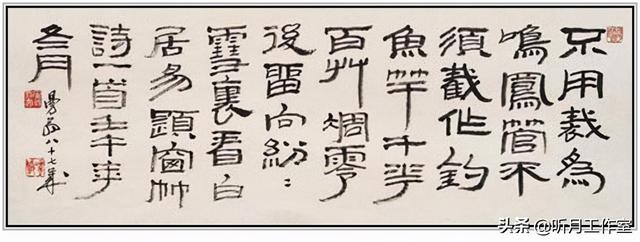 不用裁為
鳴鳳管不
須截作釣
魚竿千花
百艸凋零
後留向紛〻
雪裏看白
居易題窗竹
詩一首壬午年
冬月
曼翁八十七
头条 @听月工作室